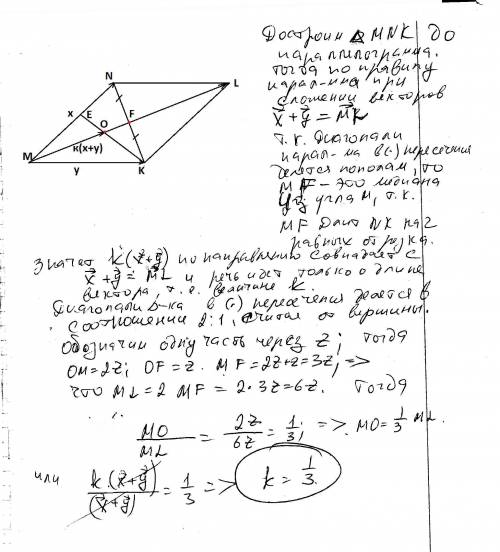 N
L
x
E
F
O
k(x+y)
M
y
K
Достроим △ MNK до
параллелограмма.
тогда по правилу
парал-ма при
сложении векторов
x + y = MK
т.к. Диагонали
парал-ма в (·) пересечения
делятся пополам, то
MF – это медиана
угла M, т.к.
MF Делит NK на 2
равных отрезка.
Значит k(x+y) по направлению совпадает с
x + y = ML и речь идет только о длине
вектора, т.е. величине k.
Диагонали Δ-ка в (·) пересечения делятся в
соотношении 2:1, считая от вершины.
Обозначим одну часть через z; тогда
OM = 2z; OF = z. MF = 2z+z = 3z, =>
что ML = 2 MF = 2·3z = 6z. тогда
MO/ML = 2z/6z = 1/3; => MO = 1/3 ML.
или k·(x+y)/(x+y) = 1/3 => k = 1/3.